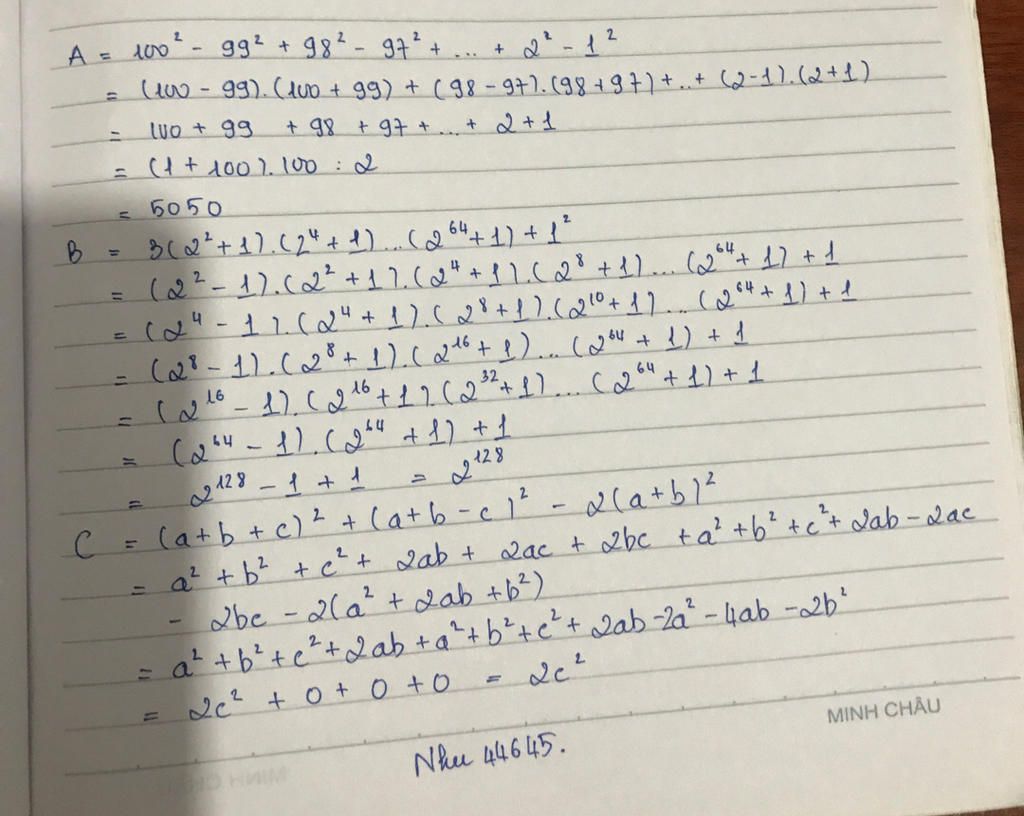 A = 100² - 99² + 98² - 97² + ... + 2² - 1²
= (100 - 99).(100 + 99) + (98 - 97).(98 + 97) + .. + (2-1).(2+1)
= 100 + 99 + 98 + 97 + ... + 2 + 1
= (1 + 100).100 : 2
= 5050
B = 3(2² + 1).(2⁴ + 1)...(2⁶⁴ + 1) + 1²
= (2² - 1).(2² + 1).(2⁴ + 1).(2⁸ + 1)...(2⁶⁴ + 1) + 1
= (2⁴ - 1).(2⁴ + 1).(2⁸ + 1).(2¹⁰ + 1)...(2⁶⁴ + 1) + 1
= (2⁸ - 1).(2⁸ + 1).(2¹⁶ + 1)...(2⁶⁴ + 1) + 1
= (2¹⁶ - 1).(2¹⁶ + 1).(2³² + 1)...(2⁶⁴ + 1) + 1
= (2⁶⁴ - 1).(2⁶⁴ + 1) + 1
= 2¹²⁸ - 1 + 1 = 2¹²⁸
C = (a + b + c)² + (a + b - c)² - 2(a + b)²
= a² + b² + c² + 2ab + 2ac + 2bc + a² + b² + c² + 2ab - 2ac
- 2bc - 2(a² + 2ab + b²)
= a² + b² + c² + 2ab + a² + b² + c² + 2ab - 2a² - 4ab - 2b²
= 2c² + 0 + 0 + 0 = 2c²
MINH CHÂU
Nhu 44645.